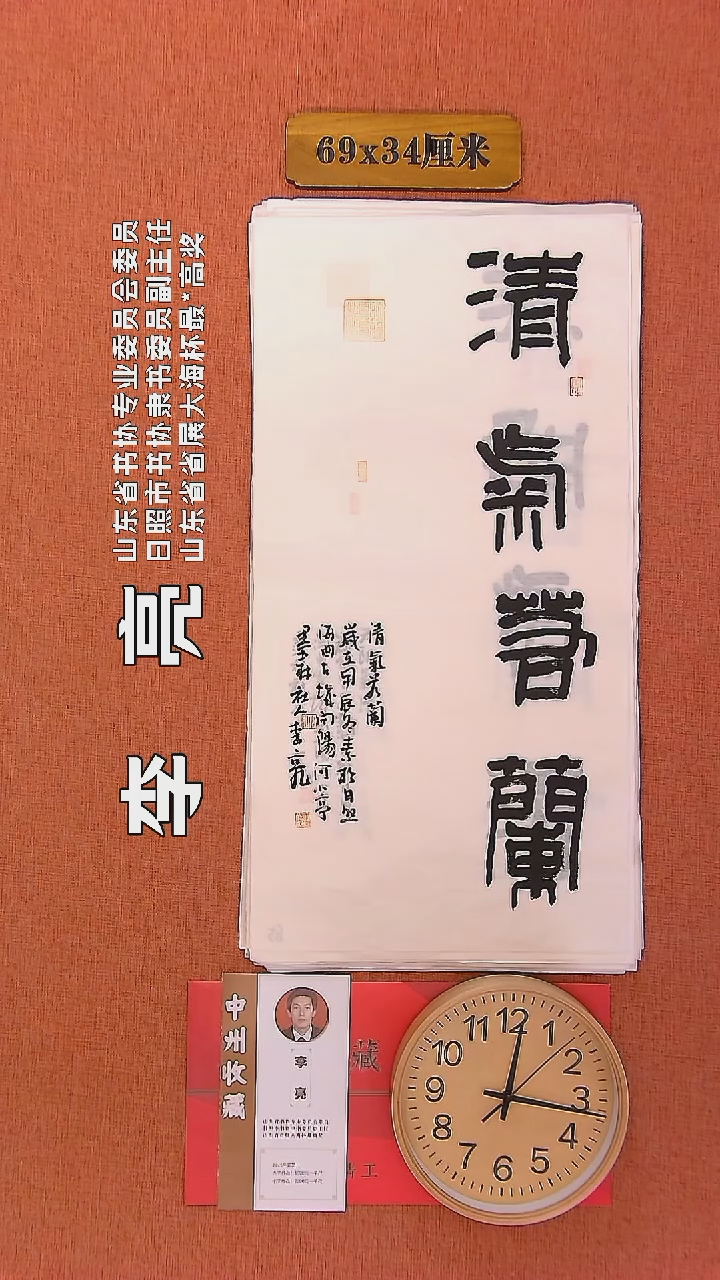 69x34厘米
清氣若蘭
清氣若蘭
歲在甲辰冬素於日照
海曲古城向陽河小亭
墨林社人李亮
山东省书协专业委员会委员
日照市书协隶书委员副主任
山东省省展大海杯最*高奖
李 亮
中州收藏
李亮
藏
12
1
2
3
4
5
6
7
8
9
10
11